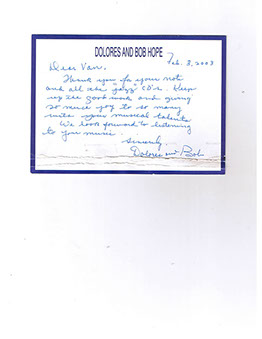 DOLORES AND BOB HOPE
Feb. 3, 2003
Dear Van,
Thank you for your note
and all the jazz CD's. Keep
up the good work and giving
so much joy to so many
with your musical talents.
We look forward to listening
to your music.
Sincerely,
Dolores and Bob